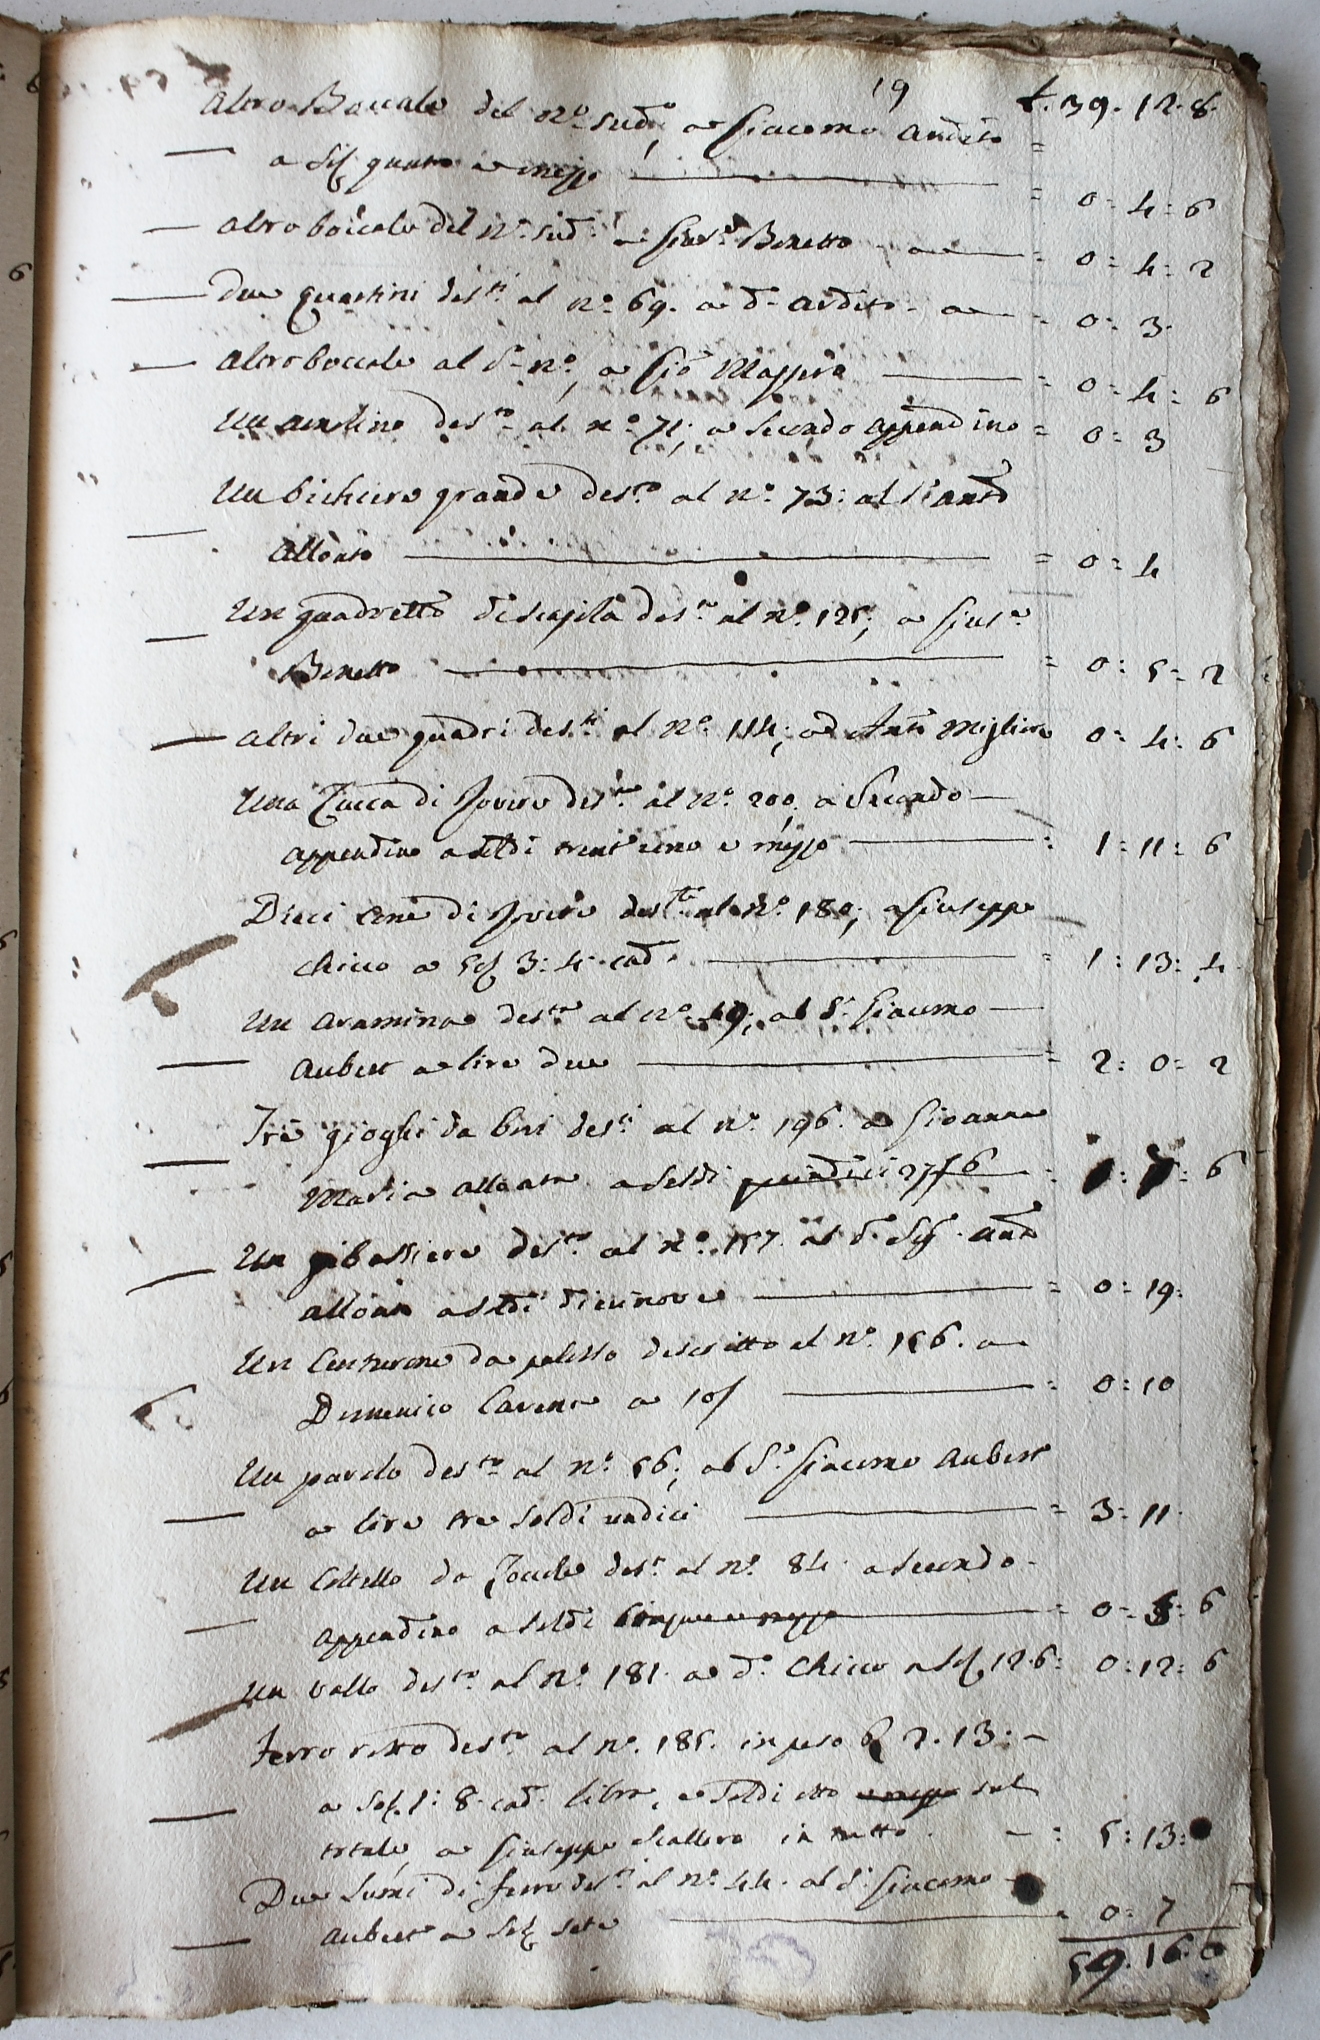 19 £. 39. 12. 8
Altro Boccale del n.º sud.º, a Giacomo Ardito =
a s.f quatro e mezzo = 0: 4: 6
Altro boccale del n.º sud.º a Gius.e Benetto a = 0: 4: 2
Due quartini des.ti al n.º 69. a d.º Ardito a = 0: 3
Altro boccale al d.º n.º, a Gio Massira = 0: 4: 6
Un des.to al n.º 71; a Secondo Appendino = 0: 3
Un bichiere grande des.to al n.º 73: al S.r Ant.o
Alloato = 0: 4
Un quadretto di scajola des.to al n.º 125; a Gius.e
Benetto = 0: 5: 2
Altri due quadri des.ti al n.º 144; ad Ant.o Migliore 0: 4: 6
Una Zucca di Rovere des.ta al n.º 200, a Secondo
Appendino a soldi trent'uno e mezzo : 1: 11: 6
Dieci di Rovere des.te al n.º 180; a Giuseppe
Chicco a s.f 3: 4 cad. = 1: 13: 4
Un aramina des.to al n.º 49; al S.r Giacomo
Aubert a lire due = 2: 0: 2
Tre gioghi da bui des.ti al n.º 196. a Gioanna
Maria Alloata a soldi quindici 27 f 6 = 1: 7: 6
Un gibassiere des.to al n.º 157. al d.º Sig.r Ant.o
Alloat a soldi diecinove = 0: 19:
Un Centurone da descritto al n.º 156. a
Domenico Cavena a 10 f : 0: 10
Un parolo des.to al n.º 56; al S.r Giacomo Aubert
a lire tre soldi undici = 3: 11
Un Coltello da des.to al n.º 84 a Secondo
Appendino a soldi cinque e mezzo = 0: 5: 6
Un vallo des.to al n.º 181. a d.º Chicco a s.f 12.6: 0: 12: 6
Ferro rotto des.to al n.º 185. in peso 2. 13:
a s.f 1: 8. cad. libra, e soldi otto e mezzo sul
totale, a Giuseppe Scallero in tutto : 5: 13:
Due Lumi di ferro des.ti al n.º 44. al S.r Giacomo
Aubert a s.f sete = 0: 7
59. 16. 0